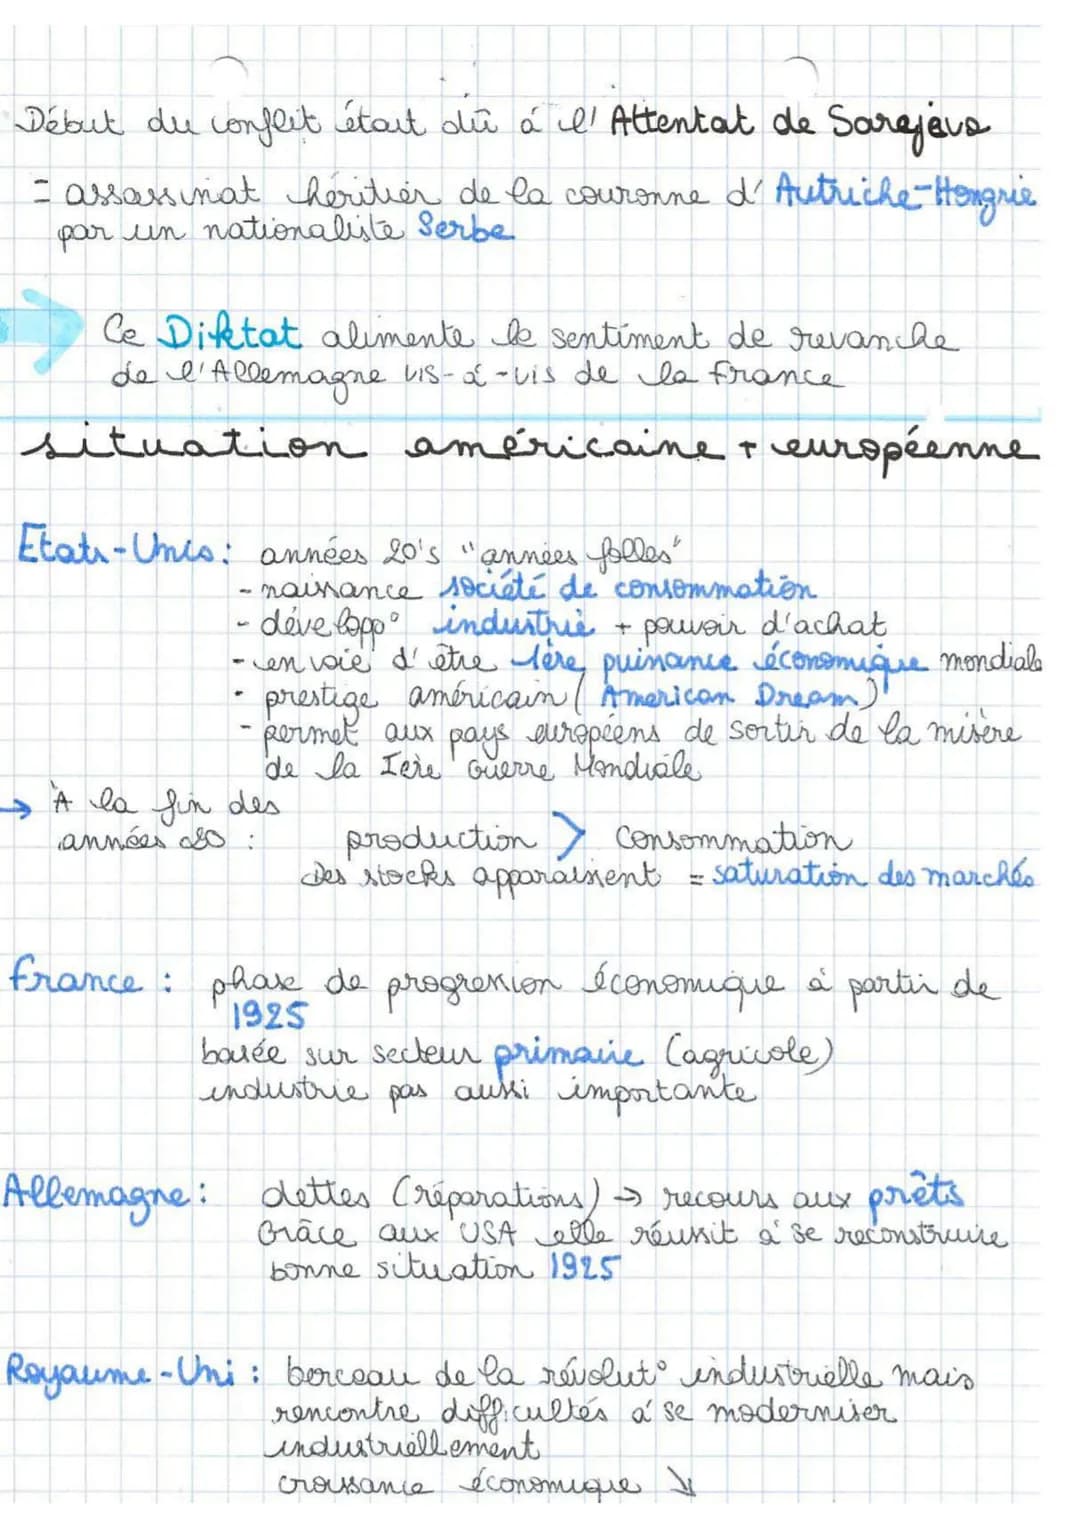 Début du conflit était dû á l' Attentat de Sarajevo
= assassinat héritier de la couronne d' Autriche-Hongrie
par un nationaliste Serbe
Ce Diktat alimente le sentiment de revanche
de l'Allemagne vis-à-vis de la France
situation américaine + européenne
Etats-Unis : années 20's "années folles"
- naissance société de consommation
- développ° industrie + pouvoir d'achat
- en voie d'être 1ère puissance économique mondiale
- prestige américain ( American Dream )
- permet aux pays européens de sortir de la misère
de la Ière Guerre Mondiale
→ À la fin des
années 20 : production > consommation
Des stocks apparaissent = saturation des marchés
France : phase de progression économique à partir de
1925
basée sur secteur primaire (agricole)
industrie pas aussi importante
Allemagne : dettes (réparations) → recours aux prêts
Grâce aux USA elle réussit à se reconstruire
bonne situation 1925
Royaume-Uni : berceau de la révolut° industrielle mais
rencontre difficultés à se moderniser
industriellement
croissance économique ↘